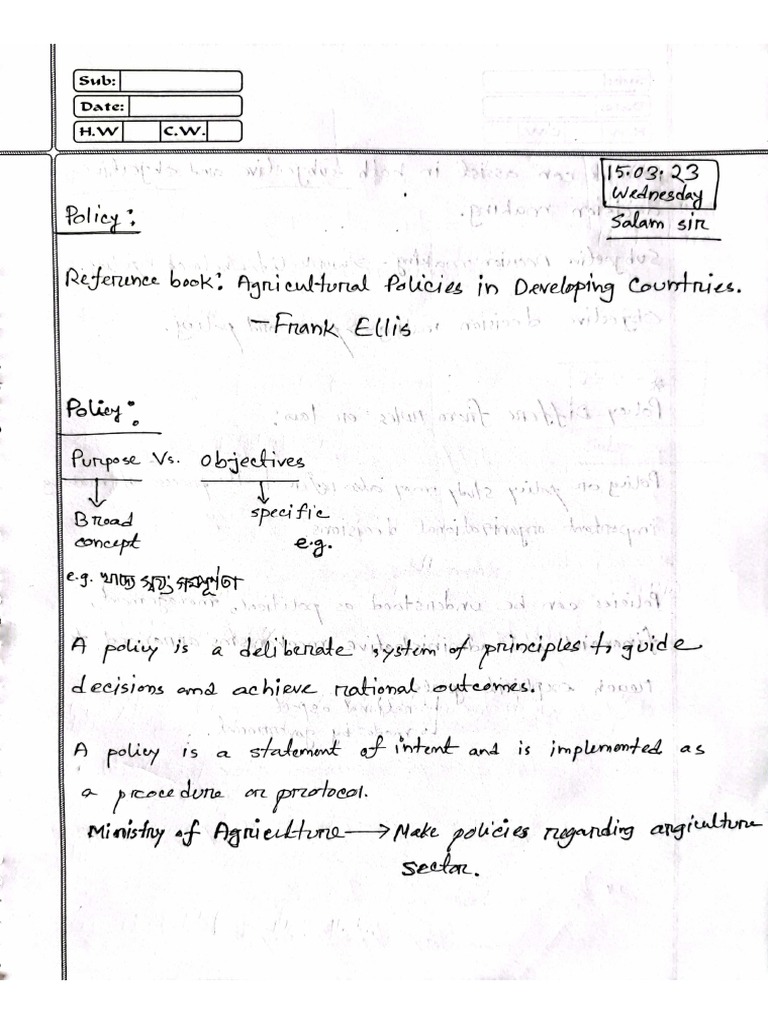 Sub:
Date:
H.W C.W.
15.03.23
Wednesday
Salam sir
Policy:
Reference book: Agricultural Policies in Developing Countries.
— Frank Ellis
Policy:
Purpose Vs. Objectives
Broad concept
specific
e.g.
e.g. খাদ্য স্বয়ং সম্পূর্ণতা
A policy is a deliberate system of principles to guide
decisions and achieve rational outcomes.
A policy is a statement of intent and is implemented as
a procedure or protocol.
Ministry of Agriculture → Make policies regarding angiculture
sector.